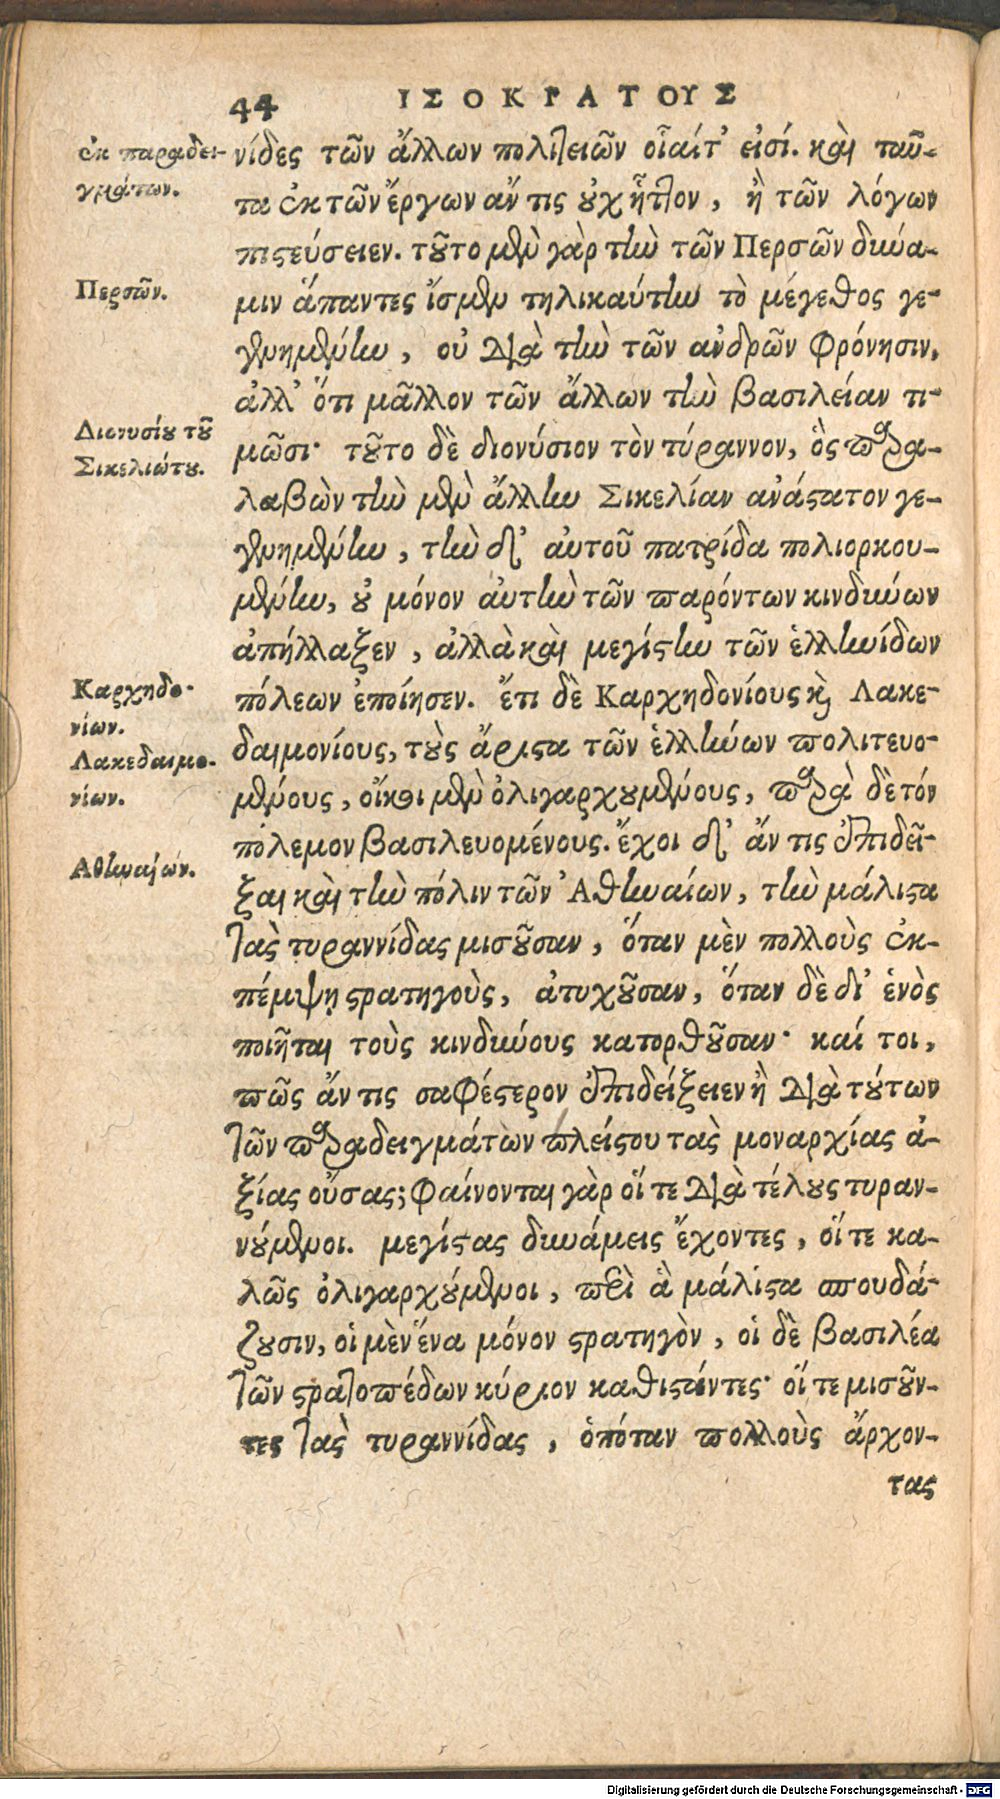 44 ΙΣΟΚΡΑΤΟΥΣ
ἐκ παραδει-
γμάτων.
νίδες τῶν ἄλλων πολιτειῶν οἷαίτ᾽ εἰσί. καὶ ταῦ-
τα ἐκ τῶν ἔργων ἄν τις οὐχ ἧττον, ἢ τῶν λόγων
πιστεύσειεν. τοῦτο μὲν γὰρ τὴν τῶν Περσῶν δύνα-
Περσῶν.
μιν ἅπαντες ἴσμεν τηλικαύτην τὸ μέγεθος γε-
γενημένην, οὐ διὰ τὴν τῶν ἀνδρῶν φρόνησιν,
ἀλλ᾽ ὅτι μᾶλλον τῶν ἄλλων τὴν βασιλείαν τι-
Διονυσίου τοῦ
Σικελιώτου.
μῶσι· τοῦτο δὲ διονύσιον τὸν τύραννον, ὃς παρα-
λαβὼν τὴν μὲν ἄλλην Σικελίαν ἀνάστατον γε-
γενημένην, τὴν δ᾽ αὐτοῦ πατρίδα πολιορκου-
μένην, οὐ μόνον αὐτὴν τῶν παρόντων κινδύνων
ἀπήλλαξεν, ἀλλὰ καὶ μεγίστην τῶν ἑλληνίδων
Καρχηδο-
νίων.
πόλεων ἐποίησεν. ἔτι δὲ Καρχηδονίους καὶ Λακε-
Λακεδαιμο-
νίων.
δαιμονίους, τοὺς ἄριστα τῶν ἑλλήνων πολιτευο-
μένους, οἴκοι μὲν ὀλιγαρχουμένους, παρὰ δὲ τόν
πόλεμον βασιλευομένους. ἔχοι δ᾽ ἄν τις ἐπιδεῖ-
Ἀθηναίων.
ξαι καὶ τὴν πόλιν τῶν Ἀθηναίων, τὴν μάλιστα
τὰς τυραννίδας μισοῦσαν, ὅταν μὲν πολλοὺς ἐκ-
πέμψῃ στρατηγοὺς, ἀτυχοῦσαν, ὅταν δὲ δι᾽ ἑνὸς
ποιῆται τοὺς κινδύνους κατορθοῦσαν· καί τοι,
πῶς ἄν τις σαφέστερον ἐπιδείξειεν ἢ διὰ τούτων
τῶν παραδειγμάτων πλείστου τὰς μοναρχίας ἀ-
ξίας οὔσας; φαίνονται γὰρ οἵ τε διὰ τέλους τυραν-
νούμενοι. μεγίστας δυνάμεις ἔχοντες, οἵ τε κα-
λῶς ὀλιγαρχούμενοι, περὶ ἃ μάλιστα σπουδά-
ζουσιν, οἱ μὲν ἕνα μόνον στρατηγὸν, οἱ δὲ βασιλέα
τῶν στρατοπέδων κύριον καθιστάντες· οἵ τε μισοῦν-
τες τὰς τυραννίδας, ὁπόταν πολλοὺς ἄρχον-
τας
Digitalisierung gefördert durch die Deutsche Forschungsgemeinschaft - DFG